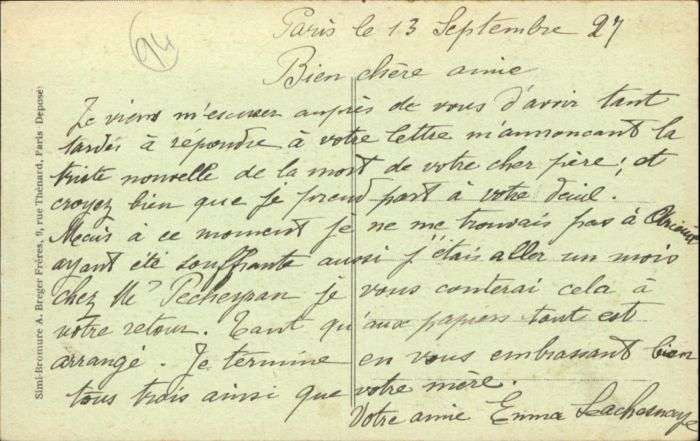 94
Paris le 13 Septembre 27
Bien chère amie
Je viens m'escuser auprès de vous d'avoir tant
tardés à répondre à votre lettre m'annoncant la
triste nouvelle de la mort de votre cher père; et
croyez bien que je prend part à votre deuil.
Mais à ce moment je ne me trouvais pas à
ayant été souffrante aussi j'étais aller un mois
chez Me Pecheyran je vous conterai cela à
votre retour. Tant qu'aux papiers tout est
arrangé. Je termine en vous embrassant bien
tous trois ainsi que votre mère.
Votre amie Emma Lachesnaye
Simi-Bromure A. Breger Frères, 9, rue Thénard, Paris Déposé